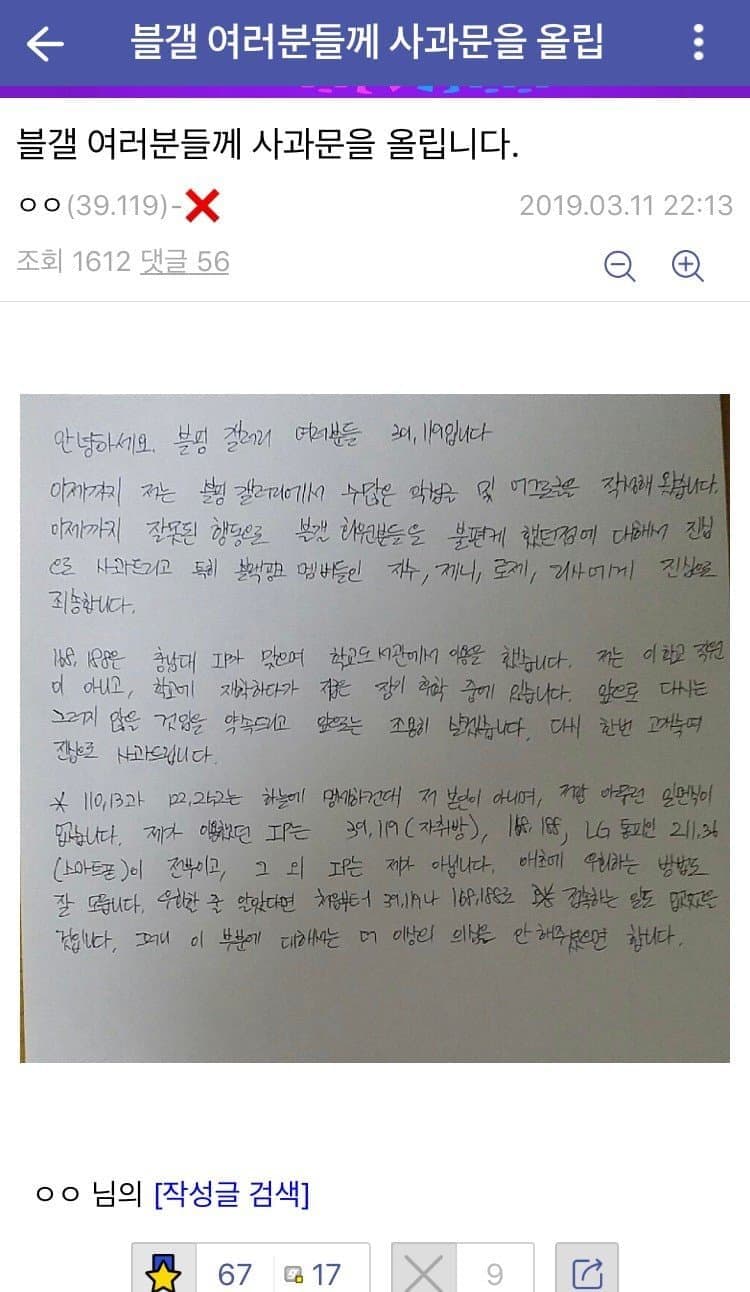 블갤 여러분들께 사과문을 올립
블갤 여러분들께 사과문을 올립니다.
ㅇㅇ(39.119)-
2019.03.11 22:13
조회 1612 댓글 56
안녕하세요. 블핑 갤러리 여러분들 39.119입니다
이제까지 저는 블핑 갤러리에서 수많은 악성글 및 어그로글을 작성해 왔습니다.
이제까지 잘못된 행동으로 블갤 회원분들을 불편케 했던점에 대해서 진심
으로 사과드리고 특히 블랙핑크 멤버들인 지수, 제니, 로제, 리사에게 진심으로
죄송합니다.
168.188은 충남대 IP가 맞으며 학교도서관에서 이용을 했습니다. 저는 이 학교 직원
이 아니고, 학교에 재학하다가 장기 휴학 중에 있습니다. 앞으로 다시는
그러지 않을 것임을 약속드리고 앞으로는 조용히 살겠습니다. 다시 한번 고개숙여
진심으로 사과드립니다.
* 110.13과 122.252는 하늘에 맹세하건대 저 본인이 아니며, 저랑 아무런 일면식이
없습니다. 제가 이용했던 IP는 39.119(자취방), 168.188, LG 통피인 211.36
(스마트폰)이 전부이고, 그 외 IP는 제가 아닙니다. 애초에 우회하는 방법도
잘 모릅니다. 우회할 줄 알았다면 처음부터 39.119나 168.188로 접속하는 일도 없었을
것입니다. 그러니 이 부분에 대해서는 더 이상의 의심을 안 해주셨으면 합니다.
ㅇㅇ 님의 [작성글 검색]
67 17 9